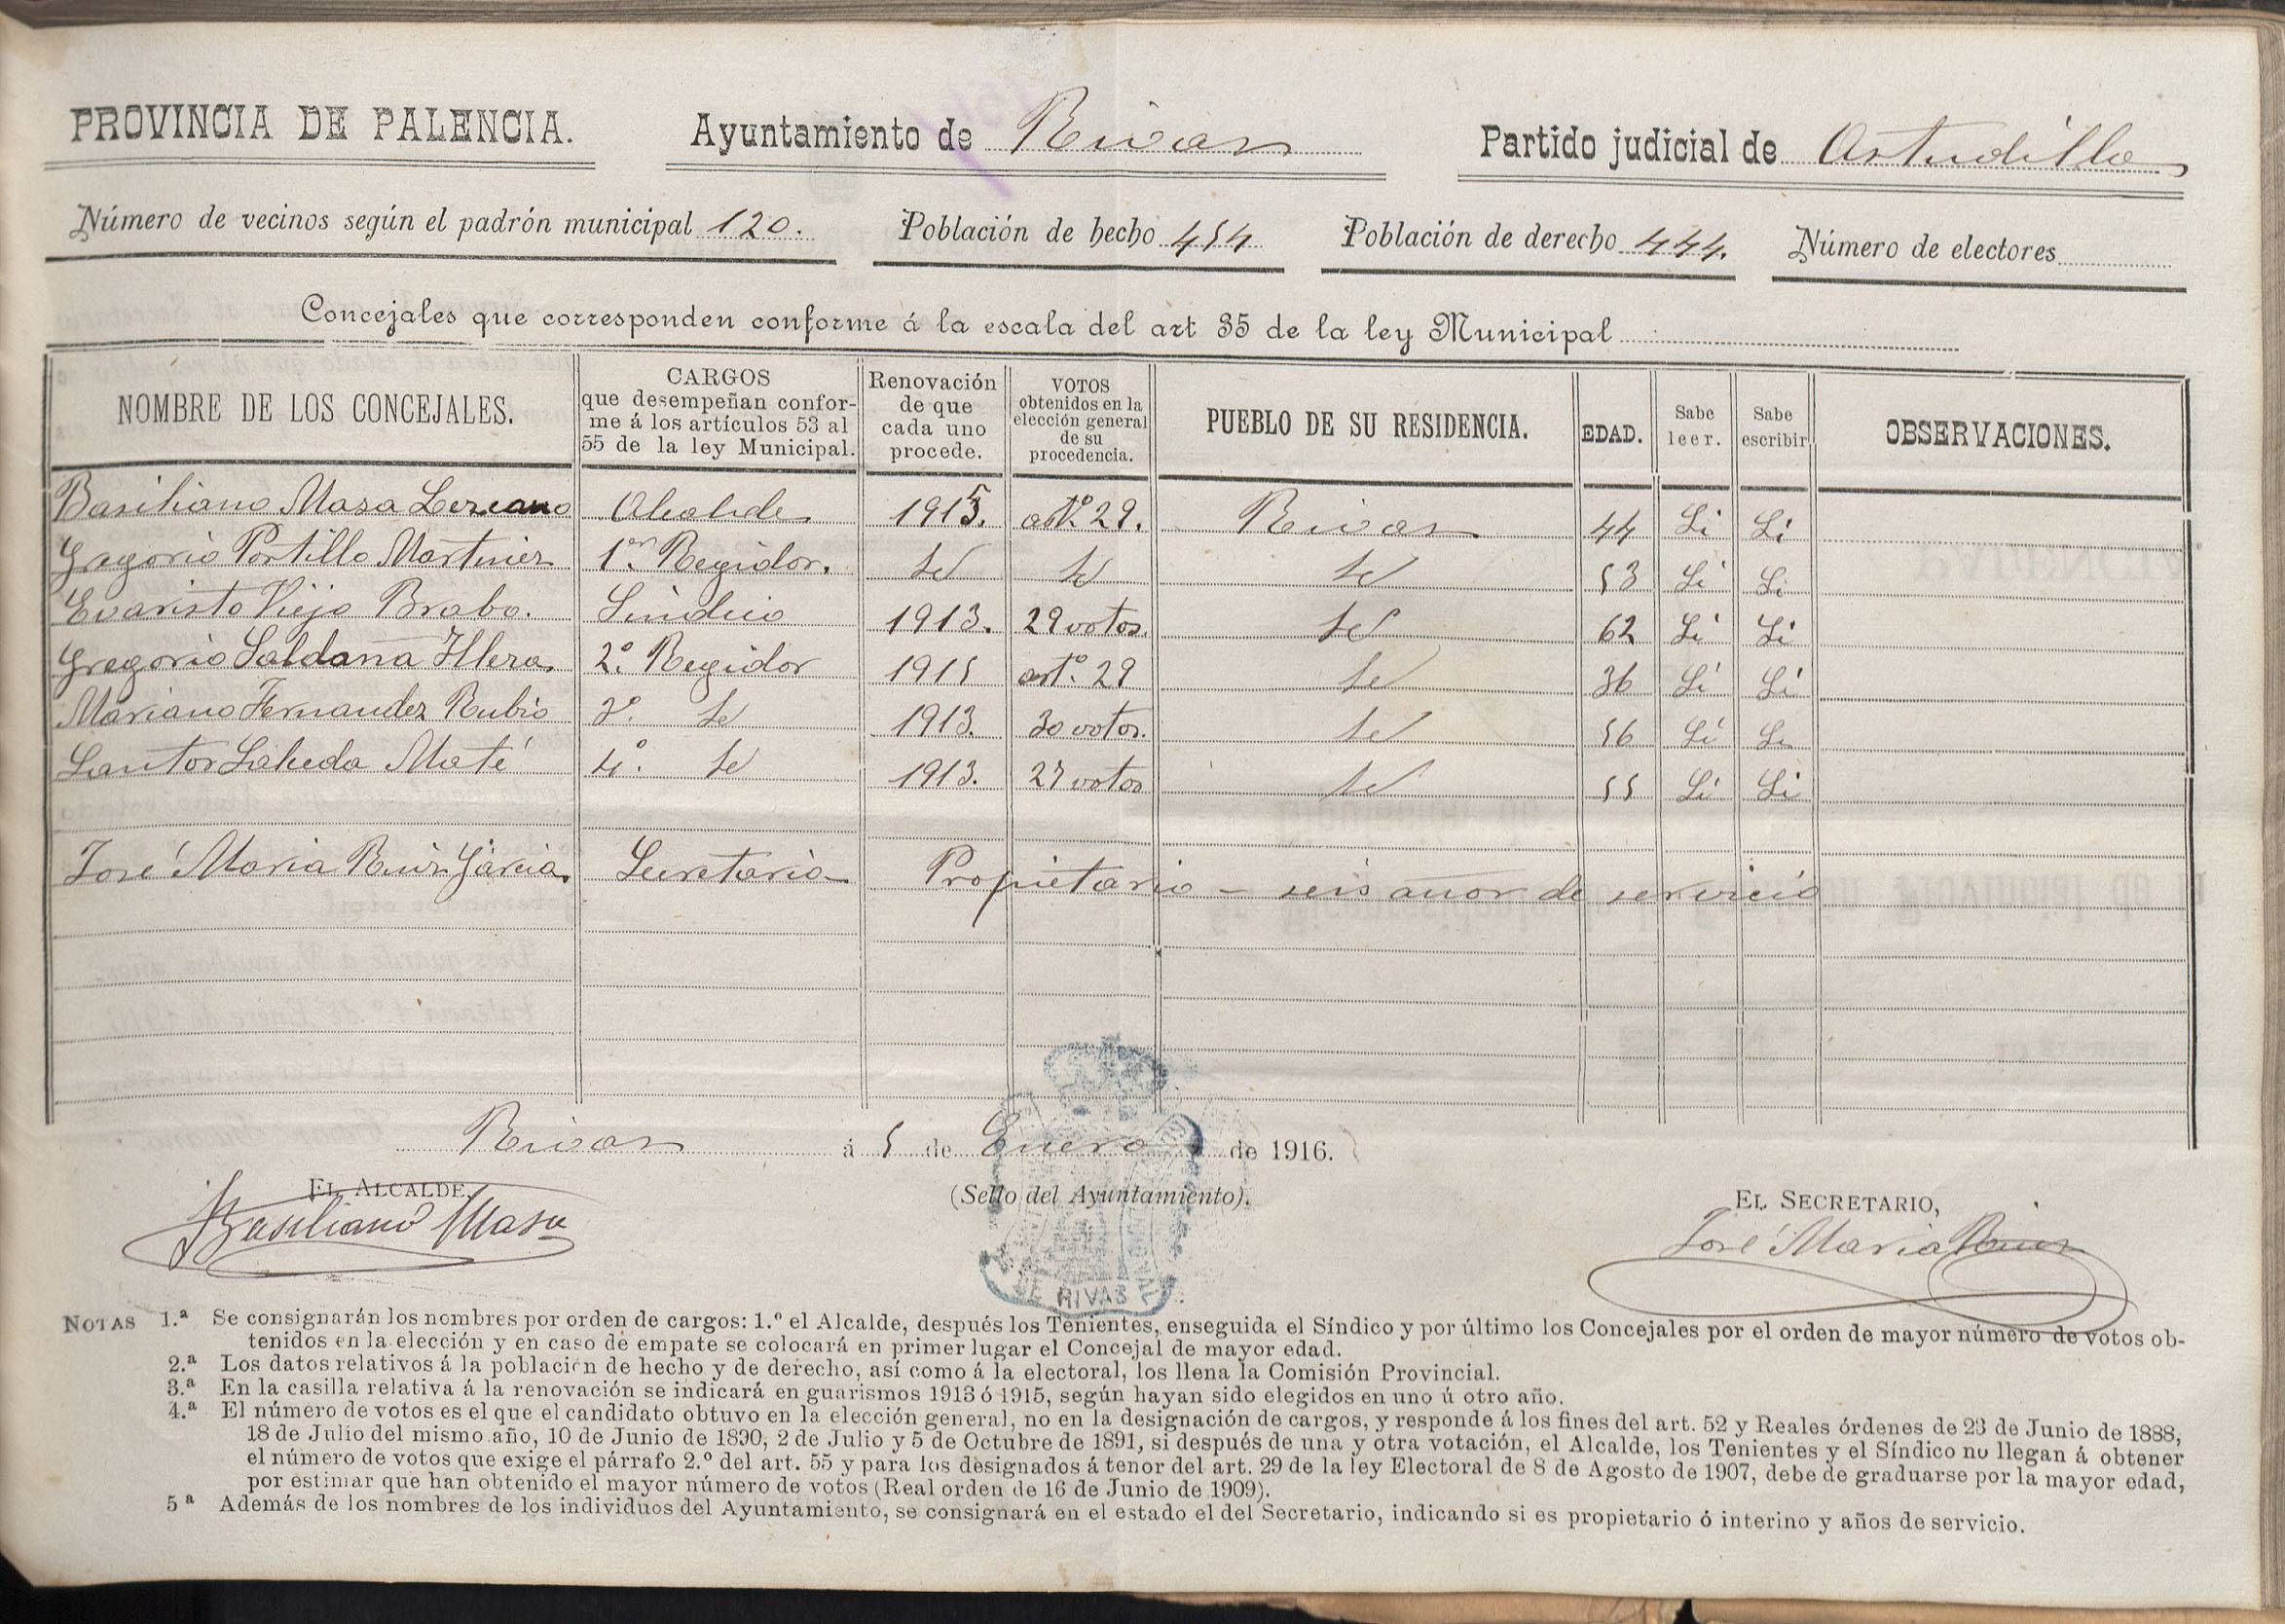 PROVINCIA DE PALENCIA. Ayuntamiento de Rivas Partido judicial de Astudillo
Número de vecinos según el padrón municipal 120. Población de hecho 454 Población de derecho 444. Número de electores
Concejales que corresponden conforme á la escala del art 35 de la ley Municipal
NOMBRE DE LOS CONCEJALES. CARGOS que desempeñan conforme á los artículos 53 al 55 de la ley Municipal. Renovación de que cada uno procede. VOTOS obtenidos en la elección general de su procedencia. PUEBLO DE SU RESIDENCIA. EDAD. Sabe leer. Sabe escribir OBSERVACIONES.
Basiliano Masa Lezcano Alcalde 1915. artº. 29. Rivas 44 Si Si
Gregorio Portillo Martinez 1.er Regidor. id id id 53 Si Si
Evaristo Viejo Brabo. Sindico 1913. 29 votos. id 62 Si Si
Gregorio Saldaña Illera 2º. Regidor 1915 artº. 29 id 36 Si Si
Mariano Fernandez Rubio 3º. id 1913. 30 votos. id 56 Si Si
Santos Salceda Maté 4º. id 1913. 27 votos id 55 Si Si
José Maria Ruiz Garcia. Secretario Propietario - seis años de servicio
Rivas á 5 de Enero de 1916.
EL ALCALDE, (Sello del Ayuntamiento). EL SECRETARIO,
Basiliano Masa José Maria Ruiz
DE RIVAS
NOTAS 1.ª Se consignarán los nombres por orden de cargos: 1.º el Alcalde, después los Tenientes, enseguida el Síndico y por último los Concejales por el orden de mayor número de votos ob-
tenidos en la elección y en caso de empate se colocará en primer lugar el Concejal de mayor edad.
2.ª Los datos relativos á la población de hecho y de derecho, así como á la electoral, los llena la Comisión Provincial.
3.ª En la casilla relativa á la renovación se indicará en guarismos 1913 ó 1915, según hayan sido elegidos en uno ú otro año.
4.ª El número de votos es el que el candidato obtuvo en la elección general, no en la designación de cargos, y responde á los fines del art. 52 y Reales órdenes de 23 de Junio de 1888,
18 de Julio del mismo año, 10 de Junio de 1890, 2 de Julio y 5 de Octubre de 1891, si después de una y otra votación, el Alcalde, los Tenientes y el Síndico no llegan á obtener
el número de votos que exige el párrafo 2.º del art. 55 y para los designados á tenor del art. 29 de la ley Electoral de 8 de Agosto de 1907, debe de graduarse por la mayor edad,
por estimar que han obtenido el mayor número de votos (Real orden de 16 de Junio de 1909).
5ª Además de los nombres de los individuos del Ayuntamiento, se consignará en el estado el del Secretario, indicando si es propietario ó interino y años de servicio.